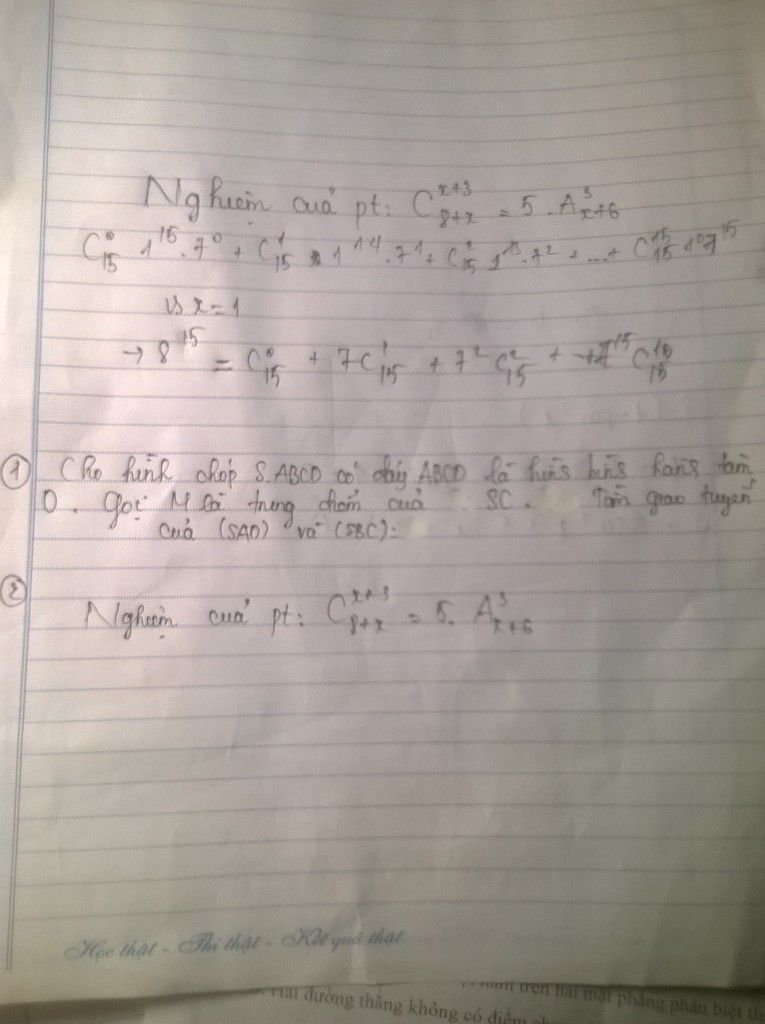 Nghiệm của pt: C_{8+x}^{x+3} = 5. A_{x+6}^{3}
C_{15}^{0} 1^{15}.7^{0} + C_{15}^{1} 1^{14}.7^{1} + C_{15}^{2} 1^{13}.7^{2} + ...+ C_{15}^{15} 1^{0}7^{15}
x = 1
→ 8^{15} = C_{15}^{0} + 7C_{15}^{1} + 7^{2} C_{15}^{2} + ...+7^{15} C_{15}^{15}
① Cho hình chóp S.ABCD có đáy ABCD là hình bình hành tâm
O. Gọi M là trung điểm của SC. Tìm giao tuyến
của (SAD) và (SBC):
② Nghiệm của pt: C_{8+x}^{x+3} = 5. A_{x+6}^{3}
Học thật - Thi thật - Kết quả thật
nằm trên hai mặt phẳng phân biệt th
Hai đường thẳng không có điểm ch